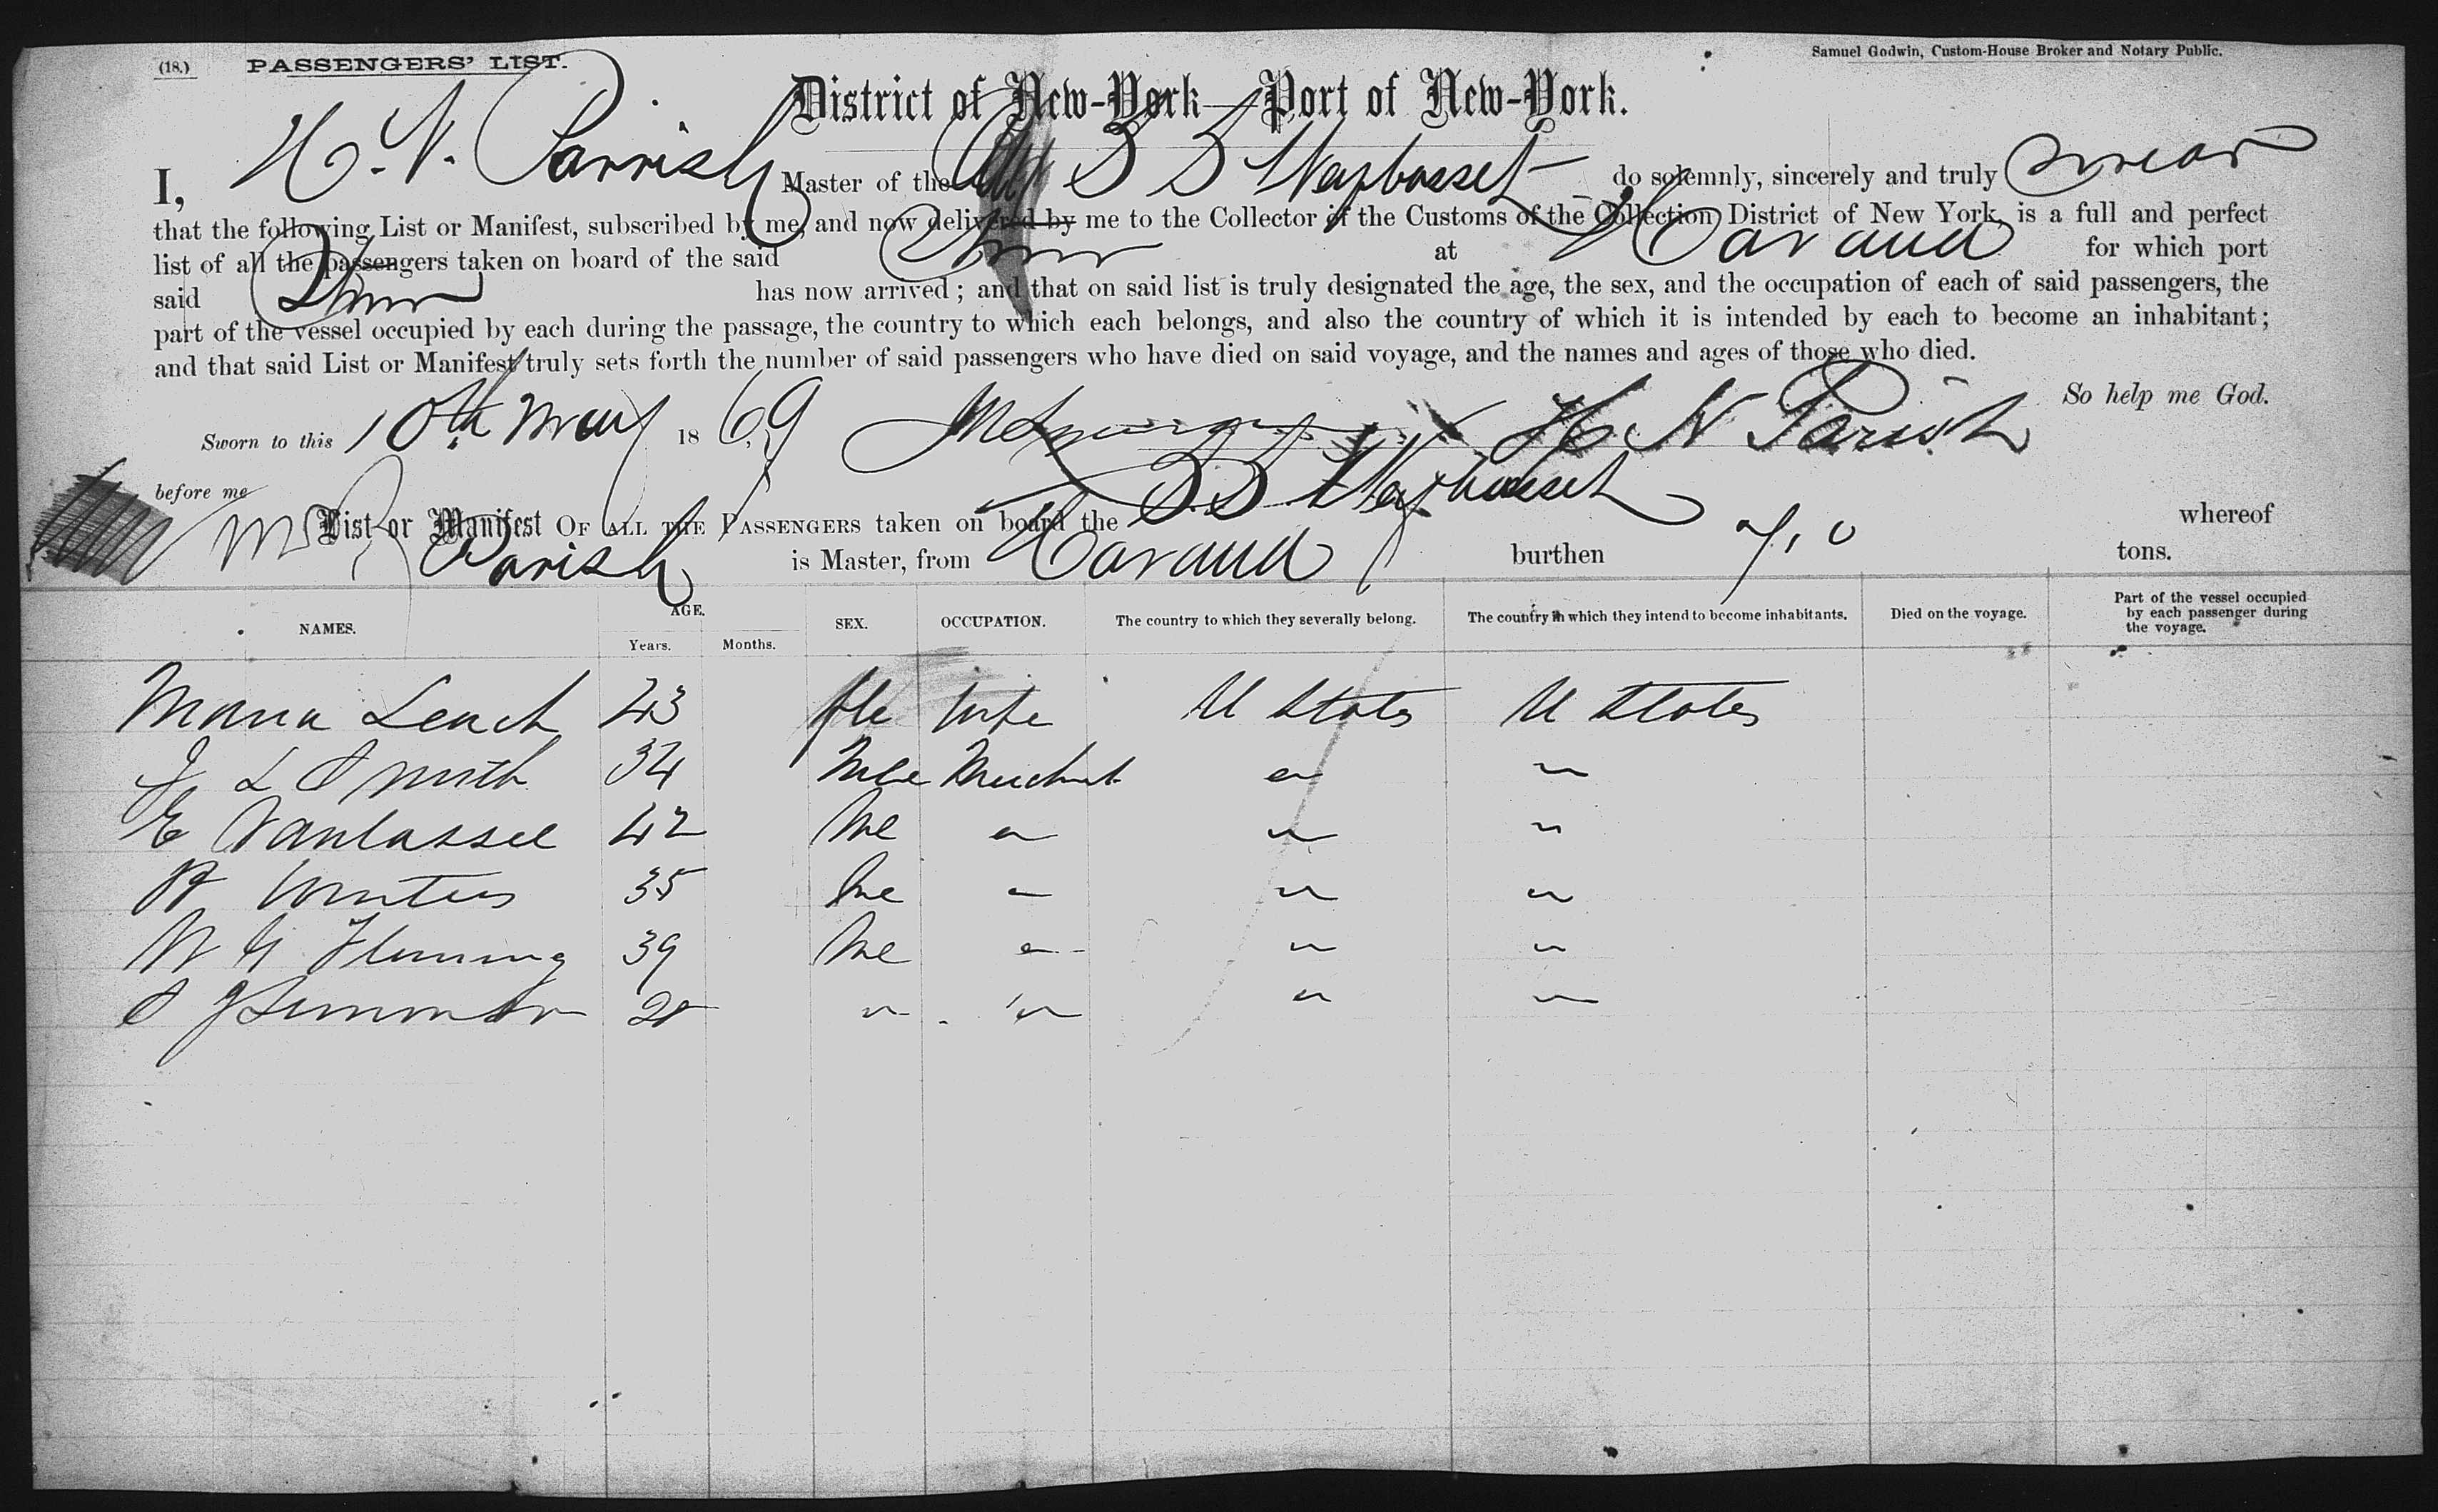 (18.) PASSENGERS' LIST. Samuel Godwin, Custom-House Broker and Notary Public.
District of New-York—Port of New-York.
I, H. N. Parrish Master of the S S Waybosset do solemnly, sincerely and truly swear
that the following List or Manifest, subscribed by me, and now delivered by me to the Collector of the Customs of the Collection District of New York, is a full and perfect
list of all the passengers taken on board of the said Stmr at Havana for which port
said Stmr has now arrived; and that on said list is truly designated the age, the sex, and the occupation of each of said passengers, the
part of the vessel occupied by each during the passage, the country to which each belongs, and also the country of which it is intended by each to become an inhabitant;
and that said List or Manifest truly sets forth the number of said passengers who have died on said voyage, and the names and ages of those who died.
So help me God.
Sworn to this 10th May 1869 H N Parish
before me
List or Manifest OF ALL THE PASSENGERS taken on board the S S Waybosset whereof
Parish is Master, from Havana burthen tons.
NAMES. AGE. SEX. OCCUPATION. The country to which they severally belong. The country in which they intend to become inhabitants. Died on the voyage. Part of the vessel occupied by each passenger during the voyage.
Years. Months.
Maria Leach 43 fle wife U States U States
J L Smith 34 Mle Merchant " "
E Vantassee 42 Me " " "
Winters 35 Me " " "
W G Fleming 39 Me " " "
S J 28 " " " "